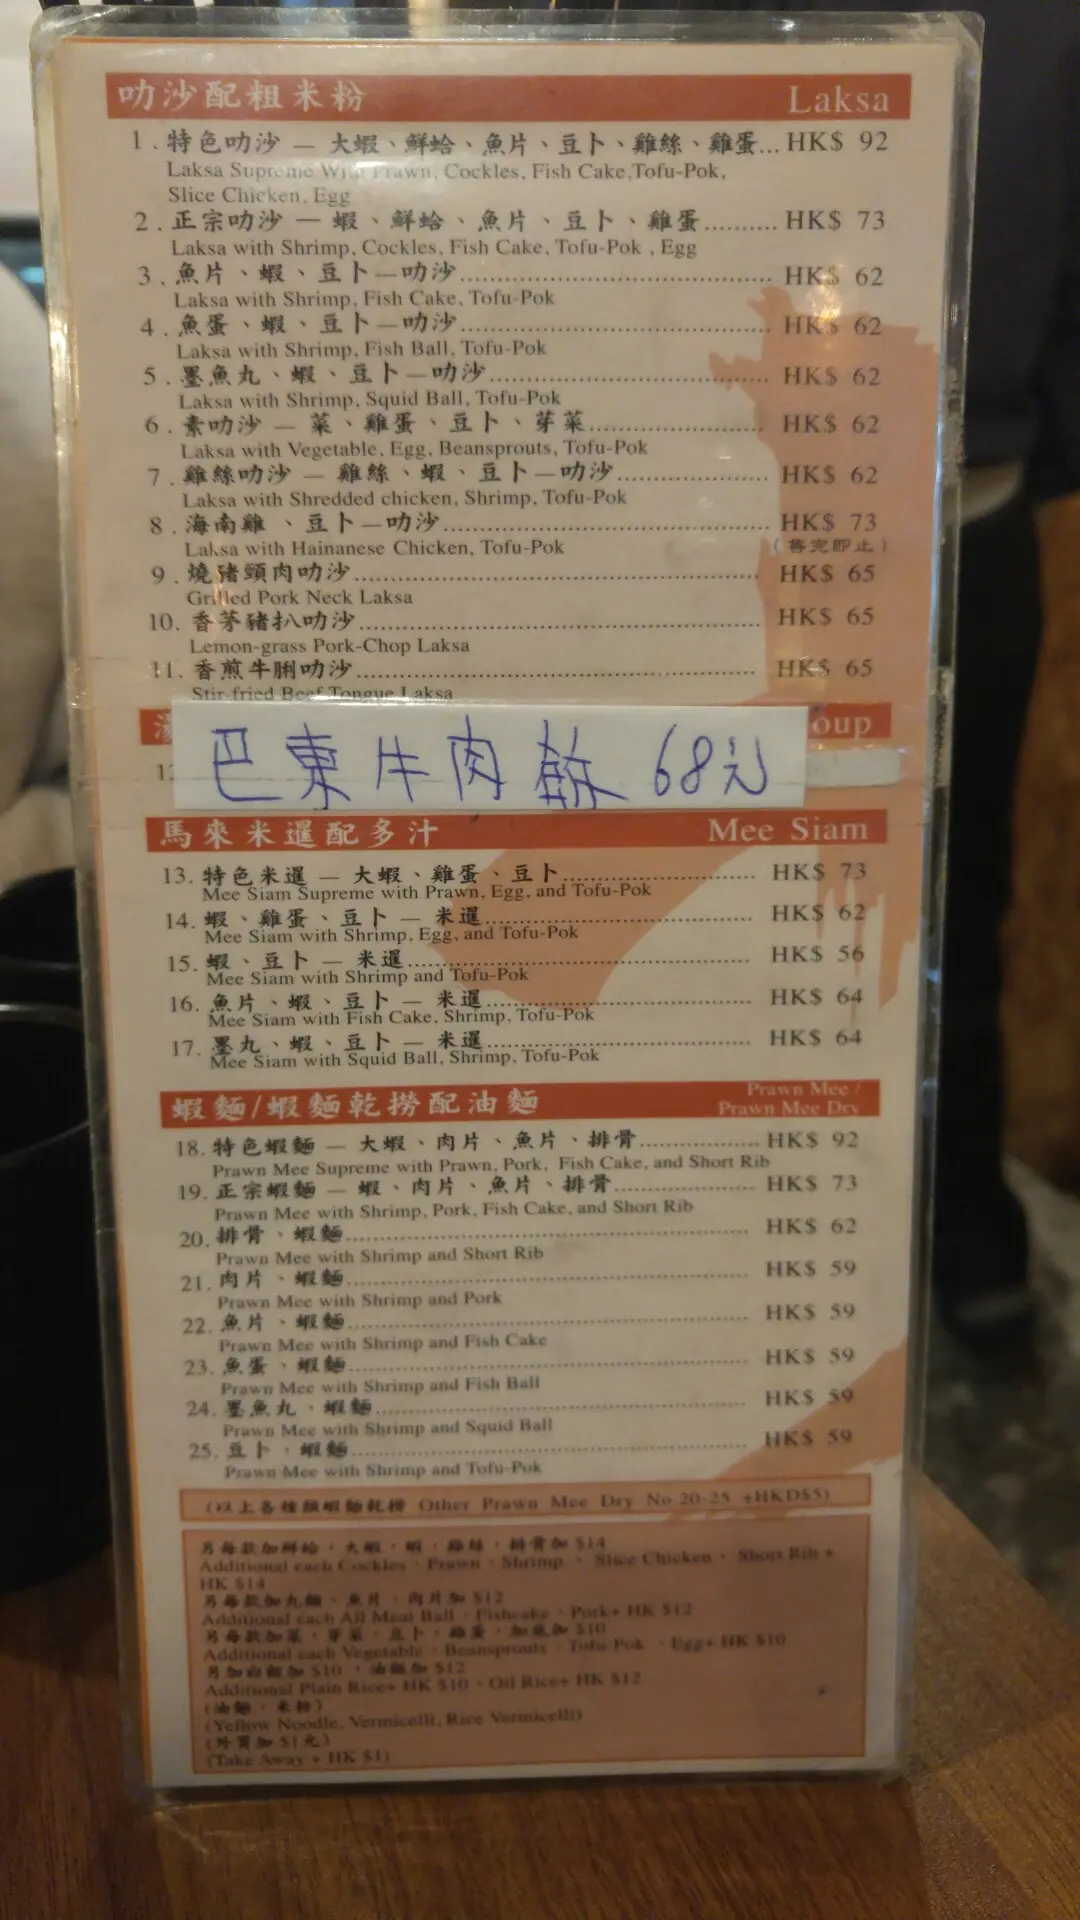 叻沙配粗米粉 Laksa
1 . 特色叻沙 — 大蝦、鮮蛤、魚片、豆卜、雞絲、雞蛋... HK$ 92
Laksa Supreme With Prawn, Cockles, Fish Cake,Tofu-Pok,
Slice Chicken, Egg
2 . 正宗叻沙 — 蝦、鮮蛤、魚片、豆卜、雞蛋.......... HK$ 73
Laksa with Shrimp, Cockles, Fish Cake, Tofu-Pok , Egg
3 . 魚片、蝦、豆卜—叻沙.......... HK$ 62
Laksa with Shrimp, Fish Cake, Tofu-Pok
4 . 魚蛋、蝦、豆卜—叻沙.......... HK$ 62
Laksa with Shrimp, Fish Ball, Tofu-Pok
5 . 墨魚丸、蝦、豆卜—叻沙.......... HK$ 62
Laksa with Shrimp, Squid Ball, Tofu-Pok
6 . 素叻沙 — 菜、雞蛋、豆卜、芽菜.......... HK$ 62
Laksa with Vegetable, Egg, Beansprouts, Tofu-Pok
7 . 雞絲叻沙 — 雞絲、蝦、豆卜—叻沙.......... HK$ 62
Laksa with Shredded chicken, Shrimp, Tofu-Pok
8 . 海南雞、豆卜—叻沙.......... HK$ 73
Laksa with Hainanese Chicken, Tofu-Pok (售完即止)
9 . 燒豬頸肉叻沙.......... HK$ 65
Grilled Pork Neck Laksa
10. 香茅豬扒叻沙.......... HK$ 65
Lemon-grass Pork-Chop Laksa
11. 香煎牛脷叻沙.......... HK$ 65
Stir-fried Beef Tongue Laksa
oup
12
巴東牛肉 68元
馬來米暹配多汁 Mee Siam
13. 特色米暹 — 大蝦、雞蛋、豆卜.......... HK$ 73
Mee Siam Supreme with Prawn, Egg, and Tofu-Pok
14. 蝦、雞蛋、豆卜 — 米暹.......... HK$ 62
Mee Siam with Shrimp, Egg, and Tofu-Pok
15. 蝦、豆卜 — 米暹.......... HK$ 56
Mee Siam with Shrimp and Tofu-Pok
16. 魚片、蝦、豆卜 — 米暹.......... HK$ 64
Mee Siam with Fish Cake, Shrimp, Tofu-Pok
17. 墨丸、蝦、豆卜 — 米暹.......... HK$ 64
Mee Siam with Squid Ball, Shrimp, Tofu-Pok
蝦麵/蝦麵乾撈配油麵 Prawn Mee /
Prawn Mee Dry
18. 特色蝦麵 — 大蝦、肉片、魚片、排骨.......... HK$ 92
Prawn Mee Supreme with Prawn, Pork, Fish Cake, and Short Rib
19. 正宗蝦麵 — 蝦、肉片、魚片、排骨.......... HK$ 73
Prawn Mee with Shrimp, Pork, Fish Cake, and Short Rib
20. 排骨、蝦麵.......... HK$ 62
Prawn Mee with Shrimp and Short Rib
21. 肉片、蝦麵.......... HK$ 59
Prawn Mee with Shrimp and Pork
22. 魚片、蝦麵.......... HK$ 59
Prawn Mee with Shrimp and Fish Cake
23. 魚蛋、蝦麵.......... HK$ 59
Prawn Mee with Shrimp and Fish Ball
24. 墨魚丸、蝦麵.......... HK$ 59
Prawn Mee with Shrimp and Squid Ball
25. 豆卜、蝦麵.......... HK$ 59
Prawn Mee with Shrimp and Tofu-Pok
(以上各種類蝦麵乾撈 Other Prawn Mee Dry No.20-25 +HKD$5)
另每款加鮮蛤、大蝦、蝦、雞絲、排骨加 $14
Additional each Cockles、Prawn、Shrimp、Slice Chicken、Short Rib +
HK $14
另每款加丸類、魚片、肉片加 $12
Additional each All Meat Ball、Fishcake、Pork+ HK $12
另每款加菜、芽菜、豆卜、雞蛋、加底加 $10
Additional each Vegetable、Beansprouts、Tofu-Pok、Egg+ HK $10
另加白飯加 $10、油飯加 $12
Additional Plain Rice+ HK $10、Oil Rice+ HK $12
(油麵、米粉)
(Yellow Noodle, Vermicelli, Rice Vermicelli)
(外賣加 $1元)
(Take Away + HK $1)